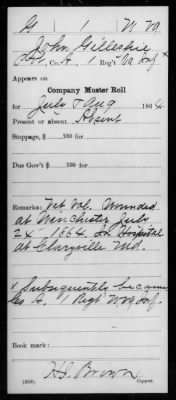 G | 1 | W Va
John Gilleskie
Co. A, 1 Reg't Va Inf x
Appears on
Company Muster Roll
for July & Aug, 1864
Present or absent Absent
Stoppage, $ 100 for
Due Gov't $ 100 for
Remarks: Vet Vol. Wounded
at Winchester July
24" 1864. In Hospital
at Claryville Md.
x Subsequently became
Co A 1 Regt W Va Inf.
Book mark:
Brown
Copyist.